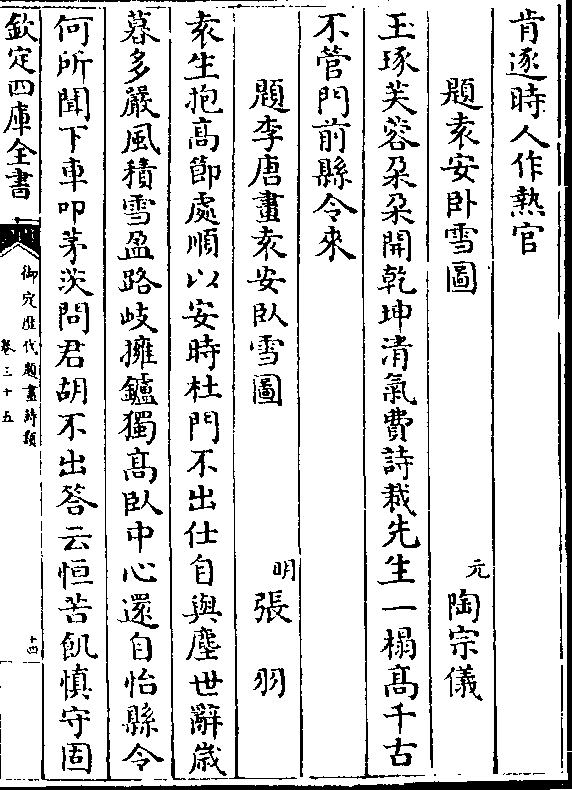 肯逐時人作熱官
題袁安卧雪圖
元陶宗儀
玉琢芙蓉朶朶開乾坤清氣費詩裁先生一榻髙千古
不管門前縣令來
題李唐畫袁安臥雪圖
明張羽
袁生抱髙節處順以安時杜門不出仕自與塵世辭歳
暮多嚴風積雪盈路岐擁鑪獨髙臥中心還自怡縣令
何所聞下車叩茅茨問君胡不出答云恒苦飢慎守固
欽定四庫全書
御定歴代題畫詩類
卷三十五
十四